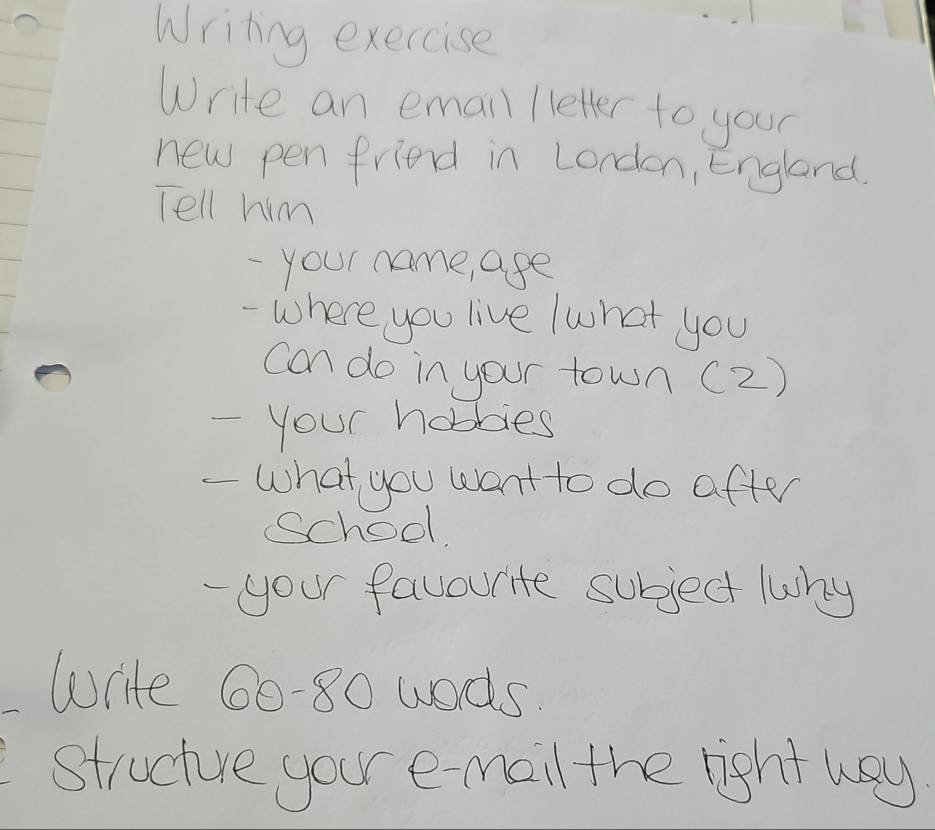 Writing exercise
Write an email/letter to your
new pen friend in London, England.
Tell him
- your name, age
- where you live/what you
can do in your town (2)
- your hobbies
- what you want to do after
school.
- your favourite subject/why
- Write 60-80 words.
Structure your e-mail the right way.